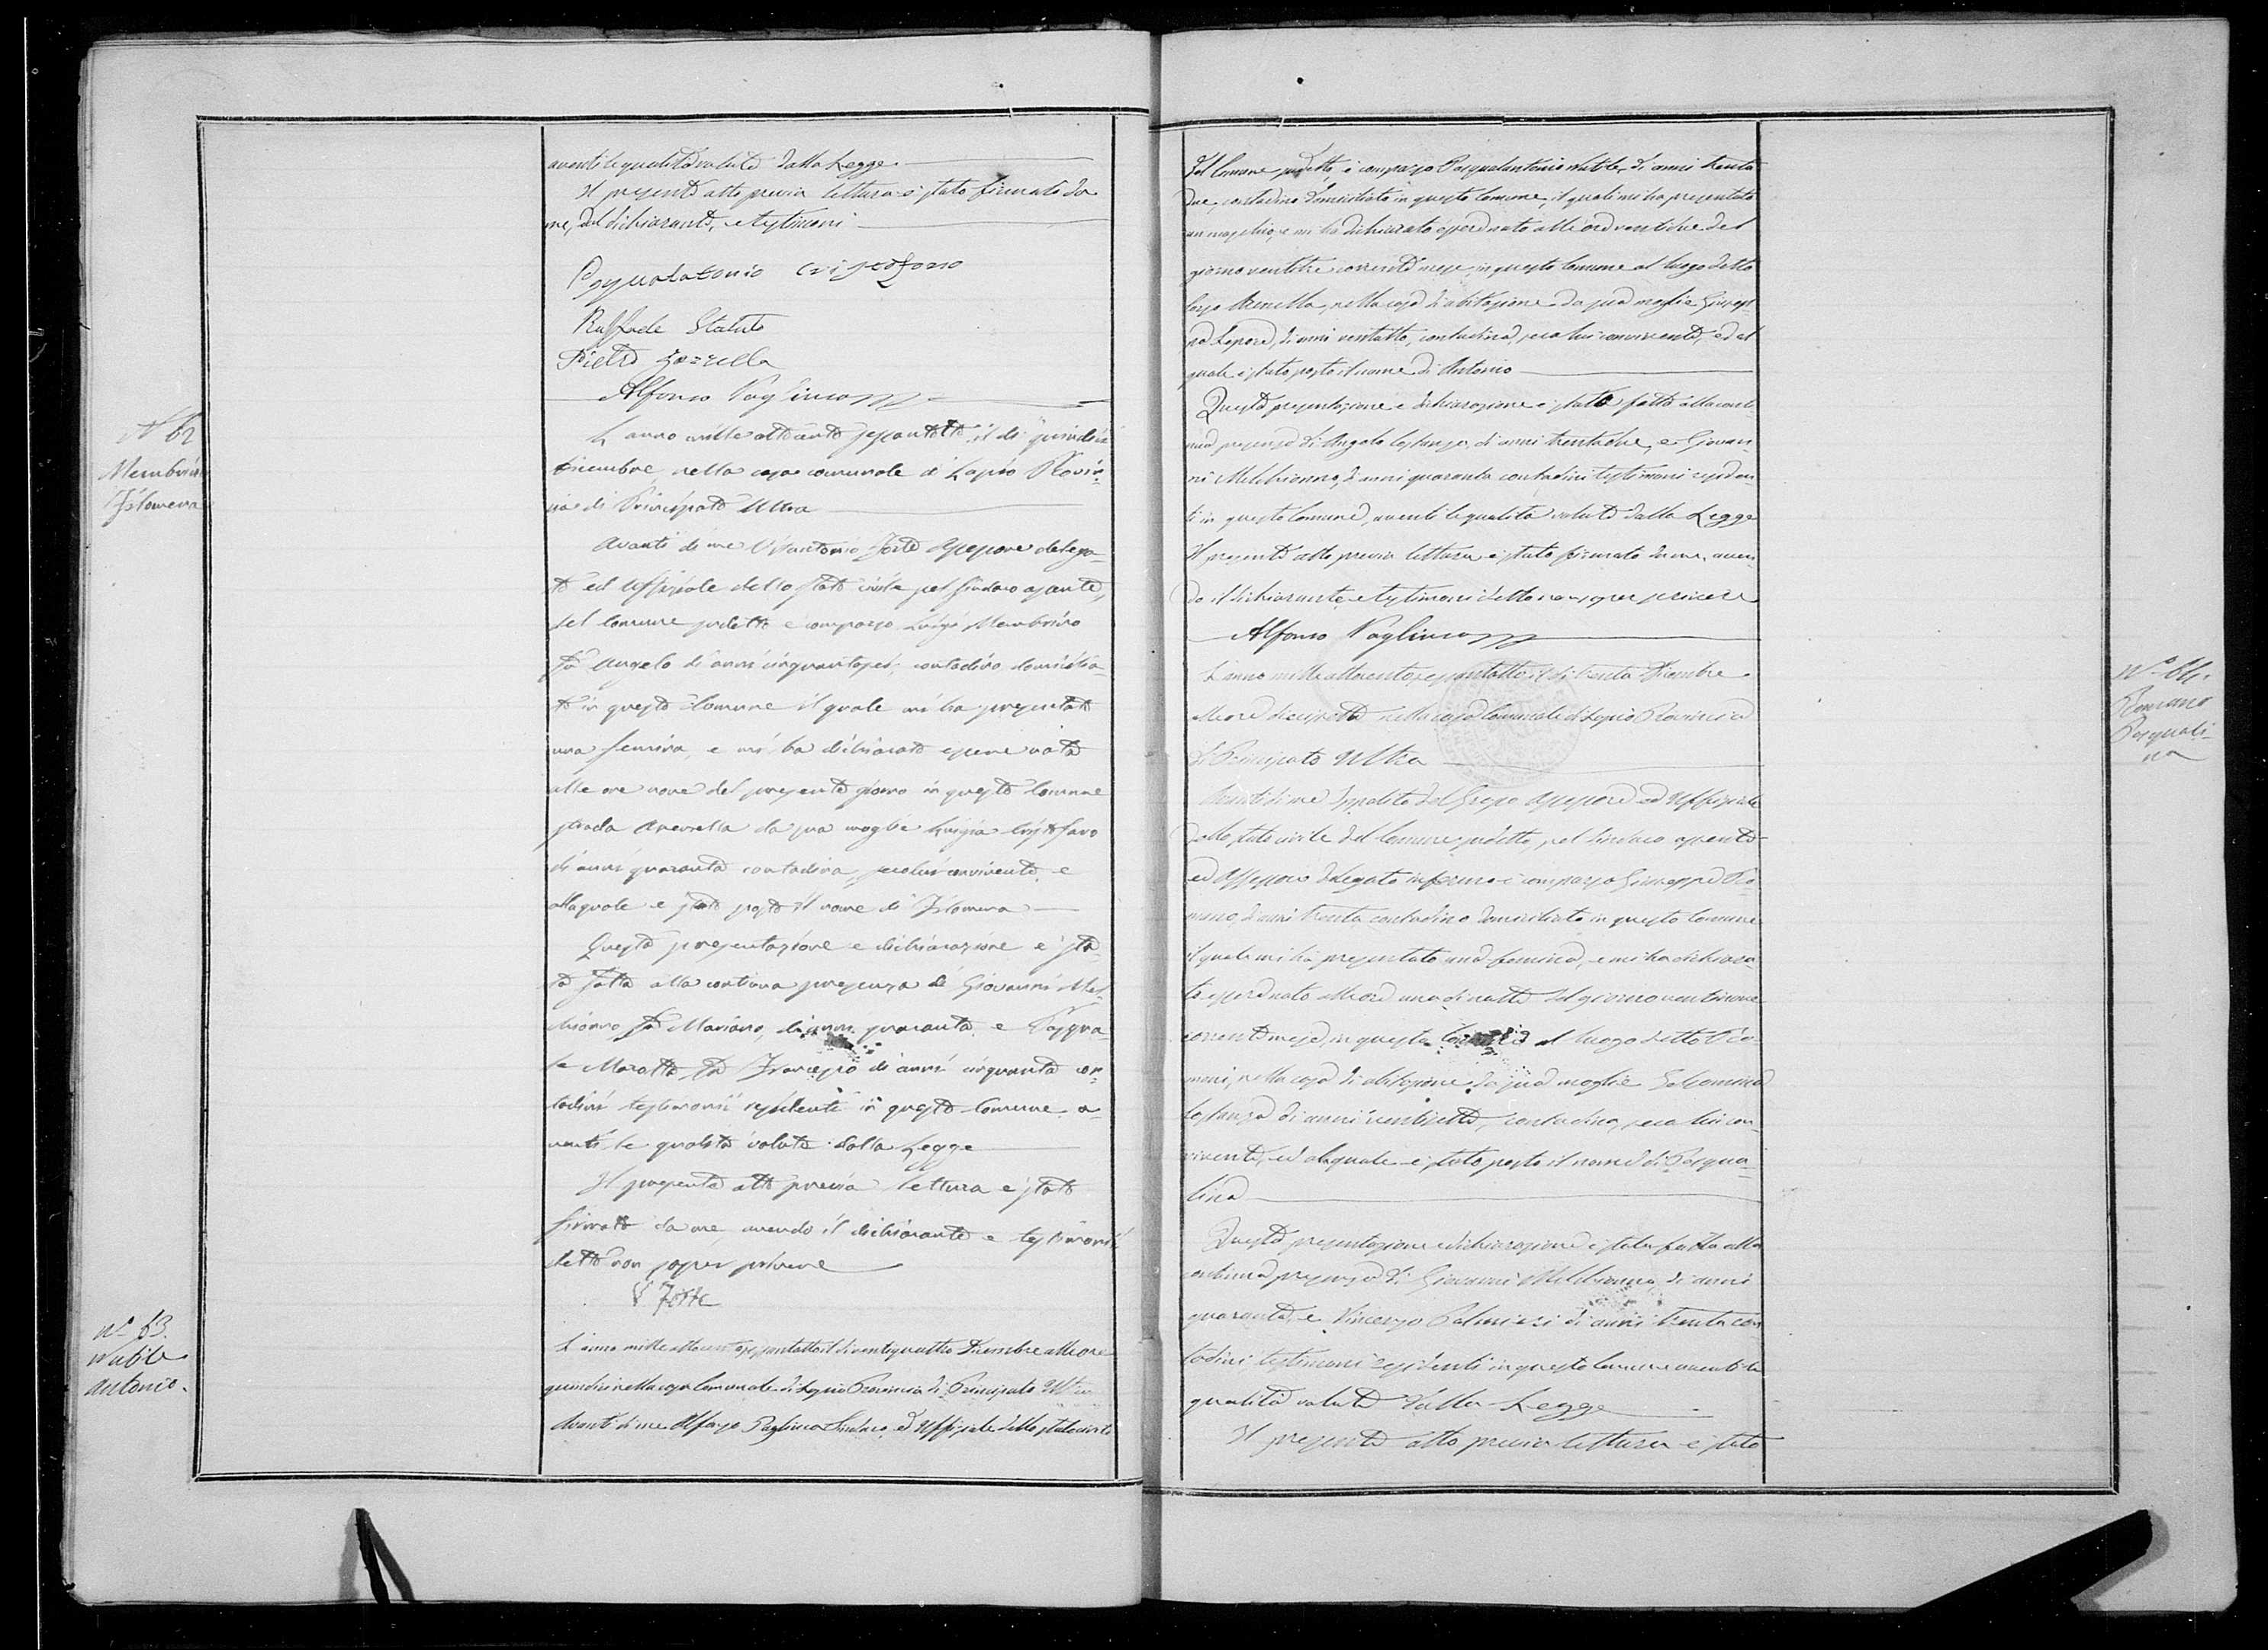 aventi le qualità volute dalla Legge
Il presente atto previa lettura è stato firmato da
me, dal dichiarante, e testimoni
Pasqualatonio Cristofono
Raffaele Statuto
Pietro Zarrella
Alfonso Pagliuca
N° 62
Membrino
Filomena
L'anno mille ottocento sessantotto il dì quindici
dicembre nella casa comunale di Lapio Provin-
cia di Principato Ultra
Avanti di me Vitantonio Forte Assessore delega-
to ed Uffiziale dello stato civile pel Sindaco assente,
del Comune sudetto è comparso Luigi Membrino
fu Angelo di anni cinquantasei, contadino domicilia-
to in questo Comune il quale mi ha presentato
una femina, e mi ha dichiarato essere nata
alle ore nove del presente giorno in questo Comune
strada Arenella da sua moglie Luigia Cristofaro
di anni quaranta contadina, secolui convivente, e
alla quale è stato posto il nome di Filomena
Questa presentazione e dichiarazione è sta-
ta fatta alla continua presenza di Giovanni Mel-
chionno fu Mariano, di anni quaranta, e Pasqua-
le Moratta fu Francesco di anni cinquanta con-
tadini testimonii residenti in questo Comune a-
venti le qualità volute dalla Legge
Il presente atto previa lettura è stato
firmato da me, avendo il dichiarante e testimonii
detto non saper scrivere
V Forte
N° 63.
Nubile
Antonio.
L'anno mille ottocento sessantotto il dì ventiquattro Dicembre alle ore
quindici nella casa Comunale di Lapio Provincia di Principato Ultra
Avanti di me Alfonso Pagliuca Sindaco, ed Uffiziale dello stato civile
del Comune sudetto, è comparso Pasqualantonio Nubile, di anni trenta
due, contadino domiciliato in questo Comune, il quale mi ha presentato
un maschio, e mi ha dichiarato essere nato alle ore ventidue del
giorno ventitre corrente mese, in questo Comune al luogo detto
largo Arenella, nella casa di abitazione da sua moglie Giusep-
pa Lepore, di anni ventotto, contadina, seco lui convivente, ed al
quale è stato posto il nome di Antonio
Questa presentazione e dichiarazione è stata fatta alla conti-
nua presenza di Angelo Costanza, di anni trentadue, e Giovan-
ni Melchionno, di anni quaranta contadini testimoni residen-
ti in questo Comune, aventi le qualità volute dalla Legge
Il presente atto previa lettura è stato firmato da me, aven-
do il dichiarante, e testimoni detto non saper scrivere
Alfonso Pagliuca
N° 64.
Romano
Pasquali-
na
L'anno mille ottocento sessantotto il dì trenta Dicembre
alle ore diecisette nella casa Comunale di Lapio Provincia
di Principato Ultra
Avanti di me Ippolito del Grosso Assessore ed Uffiziale
dello stato civile del Comune sudetto, pel Sindaco assente
ed Assessore delegato infermo è comparso Giuseppe Ro-
mano, di anni trenta contadino domiciliato in questo Comune
il quale mi ha presentato una femina, e mi ha dichiara-
to essere nato alle ore una di notte del giorno ventinove
corrente mese, in questo Comune al luogo detto Ro-
mani, nella casa di abitazione da sua moglie Gelsomina
Costanza di anni ventisette, contadina, seco lui con-
vivente, ed al quale è stato posto il nome di Pasqua-
lina
Questa presentazione e dichiarazione è stata fatta alla
continua presenza di Giovanni Melchionno, di anni
quaranta, e Vincenzo Palmieri di anni trenta con
tadini testimoni residenti in questo Comune aventi le
qualità volute dalla Legge
Il presente atto previa lettura è stato